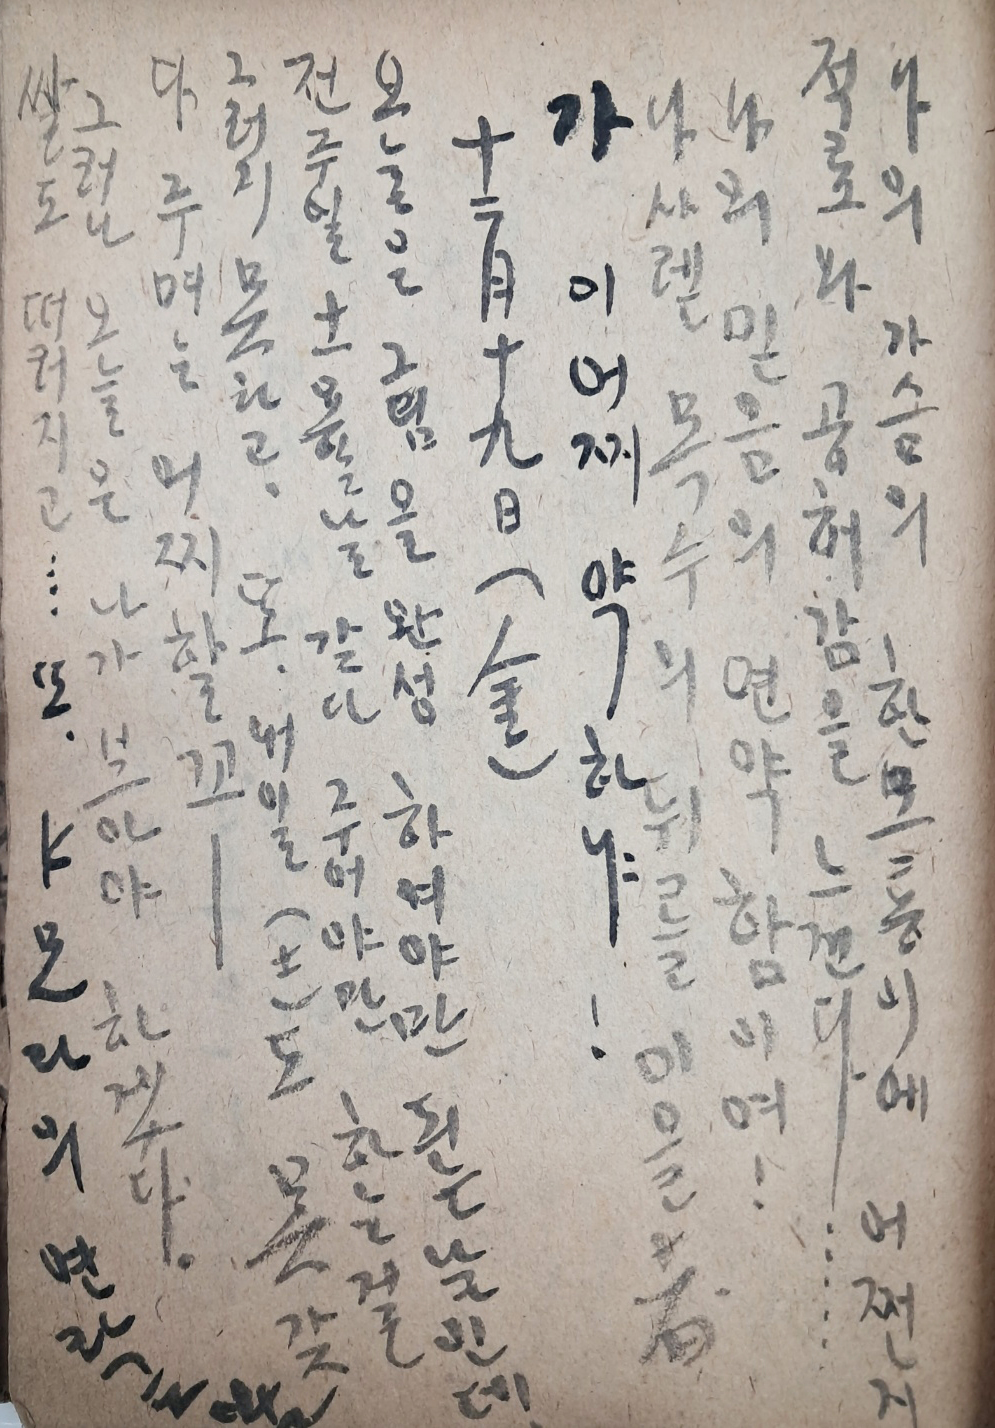 나의 가슴의 한 모퉁이에 어쩐지
적로와 공허감을 느낀다……
나의 믿음의 연약함이여!
나사렛 목수의 뒤를 이으는 者
가 이 어찌 약하냐!
十二月十九日(金)
오늘은 그림을 완성 하여야만 된는 날인데,
전주일 土요일날 갈다 주어야만 하는걸
그러지 못하고, 또. 내일(土)도 못 갖
다 주며는 어찌할꼬—
그러나 오늘은 나가 보아야 하겠다.
쌀도 떠러지고… 또. 야몬라의 반장